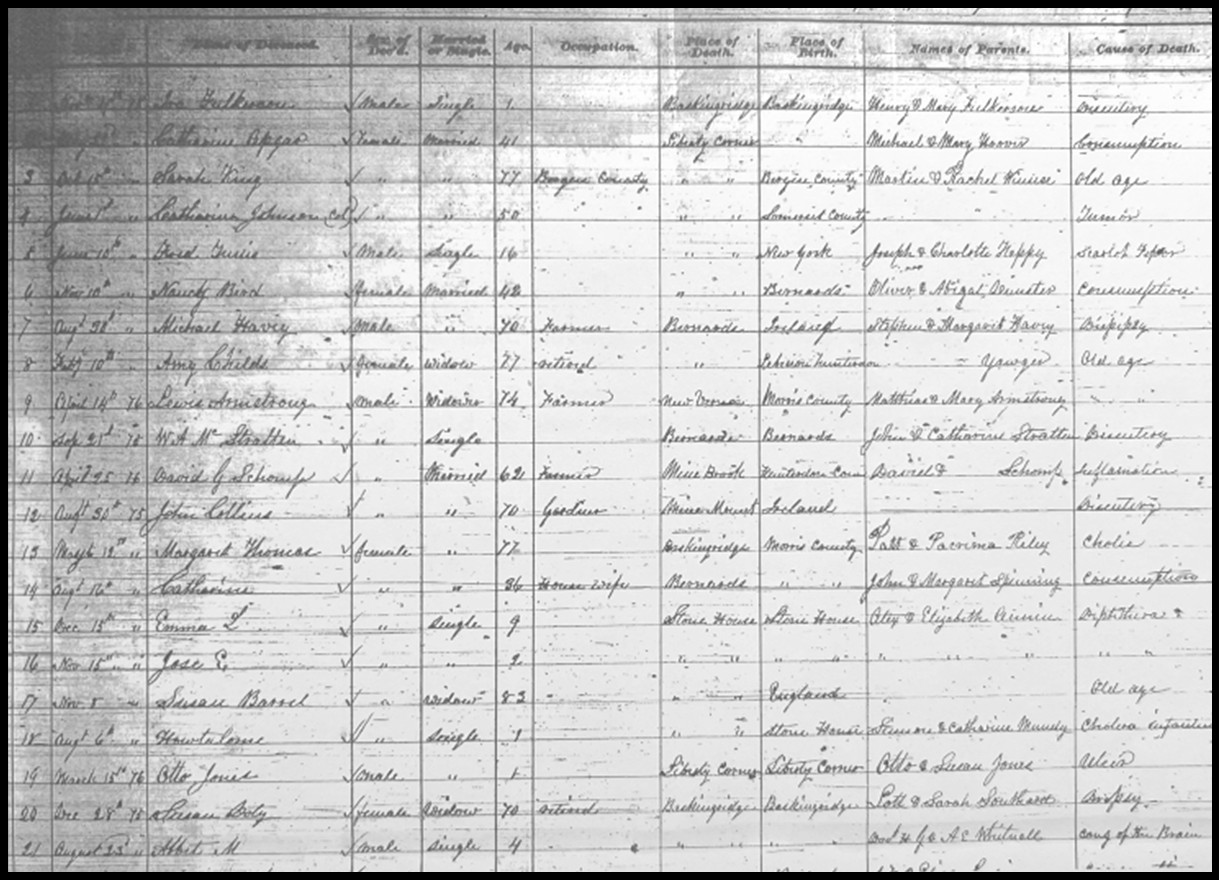 Name of Deceased. Sex of Dec'd. Married or Single. Age. Occupation. Place of Death. Place of Birth. Names of Parents. Cause of Death.
Fulkerson Male Single 1 Baskingridge Baskingridge Henry & Mary Fulkerson Disentery
Catharine Apgar Female Married 41 Liberty Corner " Michael & Mary Consumption
3 Oct 15th " Sarah King " " 77 Bergen County " " Bergen County Martin & Rachel Old age
4 June " Catharine Johnson (Col) " " 50 " " Somerset County " Tumor
5 June 10th " Male Single 16 " " New York Joseph & Charlotte Heppy Scarlet Fever
6 Nov 10th " Nancy Bird female Married 42 " " Bernards Oliver & Abigal Consumption
7 Augt 30th " Michael Havey Male " 70 Farmer Bernards Ireland Stephen & Margaret Havey
8 Feby 10th " Amy Childs female Widow 77 retired " Lebanon Hunterdon Yawger Old age
9 April 14th 76 Lewis Armstrong male Widower 74 Farmer New Vernon Morris County Matthias & Mary Armstrong " "
10 Sep 21st 75 W.A. Mc Stratten " Single Bernards Bernards John & Catharine Stratten Disentery
11 April 25 76 David G Schomp " Married 62 Farmer Mine Brook Hunterdon Coun David & Schomp Inflamation
12 Augt 30th 75 John Collins " " 70 Gardner Mine Mount Ireland Disentery
13 12th " Margaret Thomas female " 77 Baskingridge Morris County Patt & Riley Cholic
14 Augt 16th " Catharine " " 36 House Wife Bernards " " John & Margaret Spinning Consumption
15 Dec 15th " Emma L " Single 9 Stone House Stone House Alex & Elizabeth Annin Diptheria
16 Nov 15th " Jose E " " 2 " " " " " " " "
17 Nov 8 " Susan Barret " widow 83 " " England Old age
18 Augt 6th " " Single 1 " " Stone House & Catharine Mundy Cholera infantum
19 March 15th 76 Otto Jones male " 1 Liberty Corner Liberty Corner Otto & Susan Jones Ulcer
20 Dec 28th 75 Susan Doty female Widow 70 retired Baskingridge Baskingridge Lott & Sarah Southard Dropsy
21 August 23d " Abbit M male Single 4 " " " " & A E Whitnall cong of the Brain